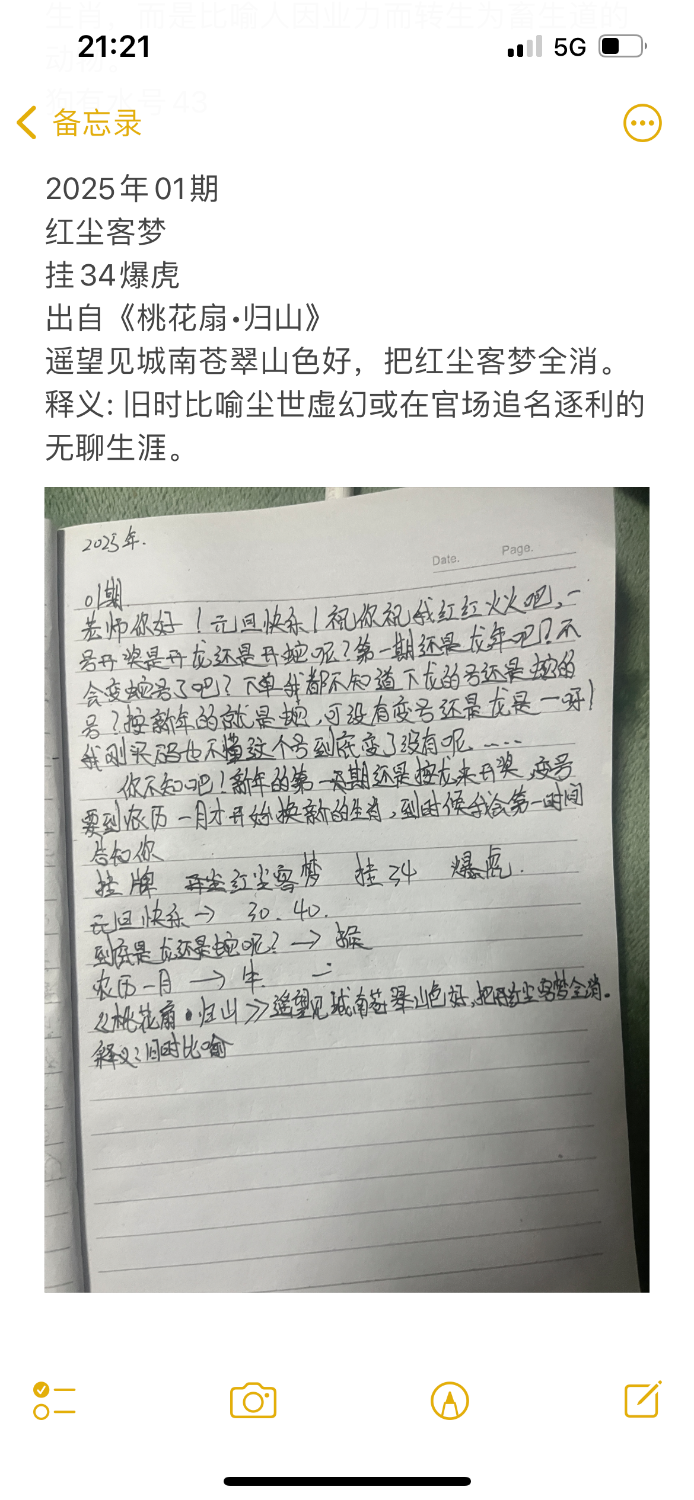 21:21
5G
备忘录
2025年01期
红尘客梦
挂34爆虎
出自《桃花扇•归山》
遥望见城南苍翠山色好，把红尘客梦全消。
释义: 旧时比喻尘世虚幻或在官场追名逐利的
无聊生涯。
2025年.
Date. Page.
01期
老师你好！元旦快乐！祝你祝我红红火火吧,一
号开奖是开龙还是开蛇呢？第一期还是龙年吧？不
会变蛇号了吧？下单我都不知道下龙的号还是蛇的
号？按新年的就是蛇，可没有变号还是龙是一呀！
我刚买码也不懂这个号到底变了没有呢……
你不知吧！新年的第一期还是按龙来开奖,变号
要到农历一月才开始换新的生肖,到时候我会第一时间
告知你
挂牌 红尘客梦 挂34 爆虎.
元旦快乐→ 30.40.
到底是龙还是蛇呢？→猴
农历一月→牛.
《桃花扇•归山》遥望见城南苍翠山色好,把红尘客梦全消.
释义:旧时比喻